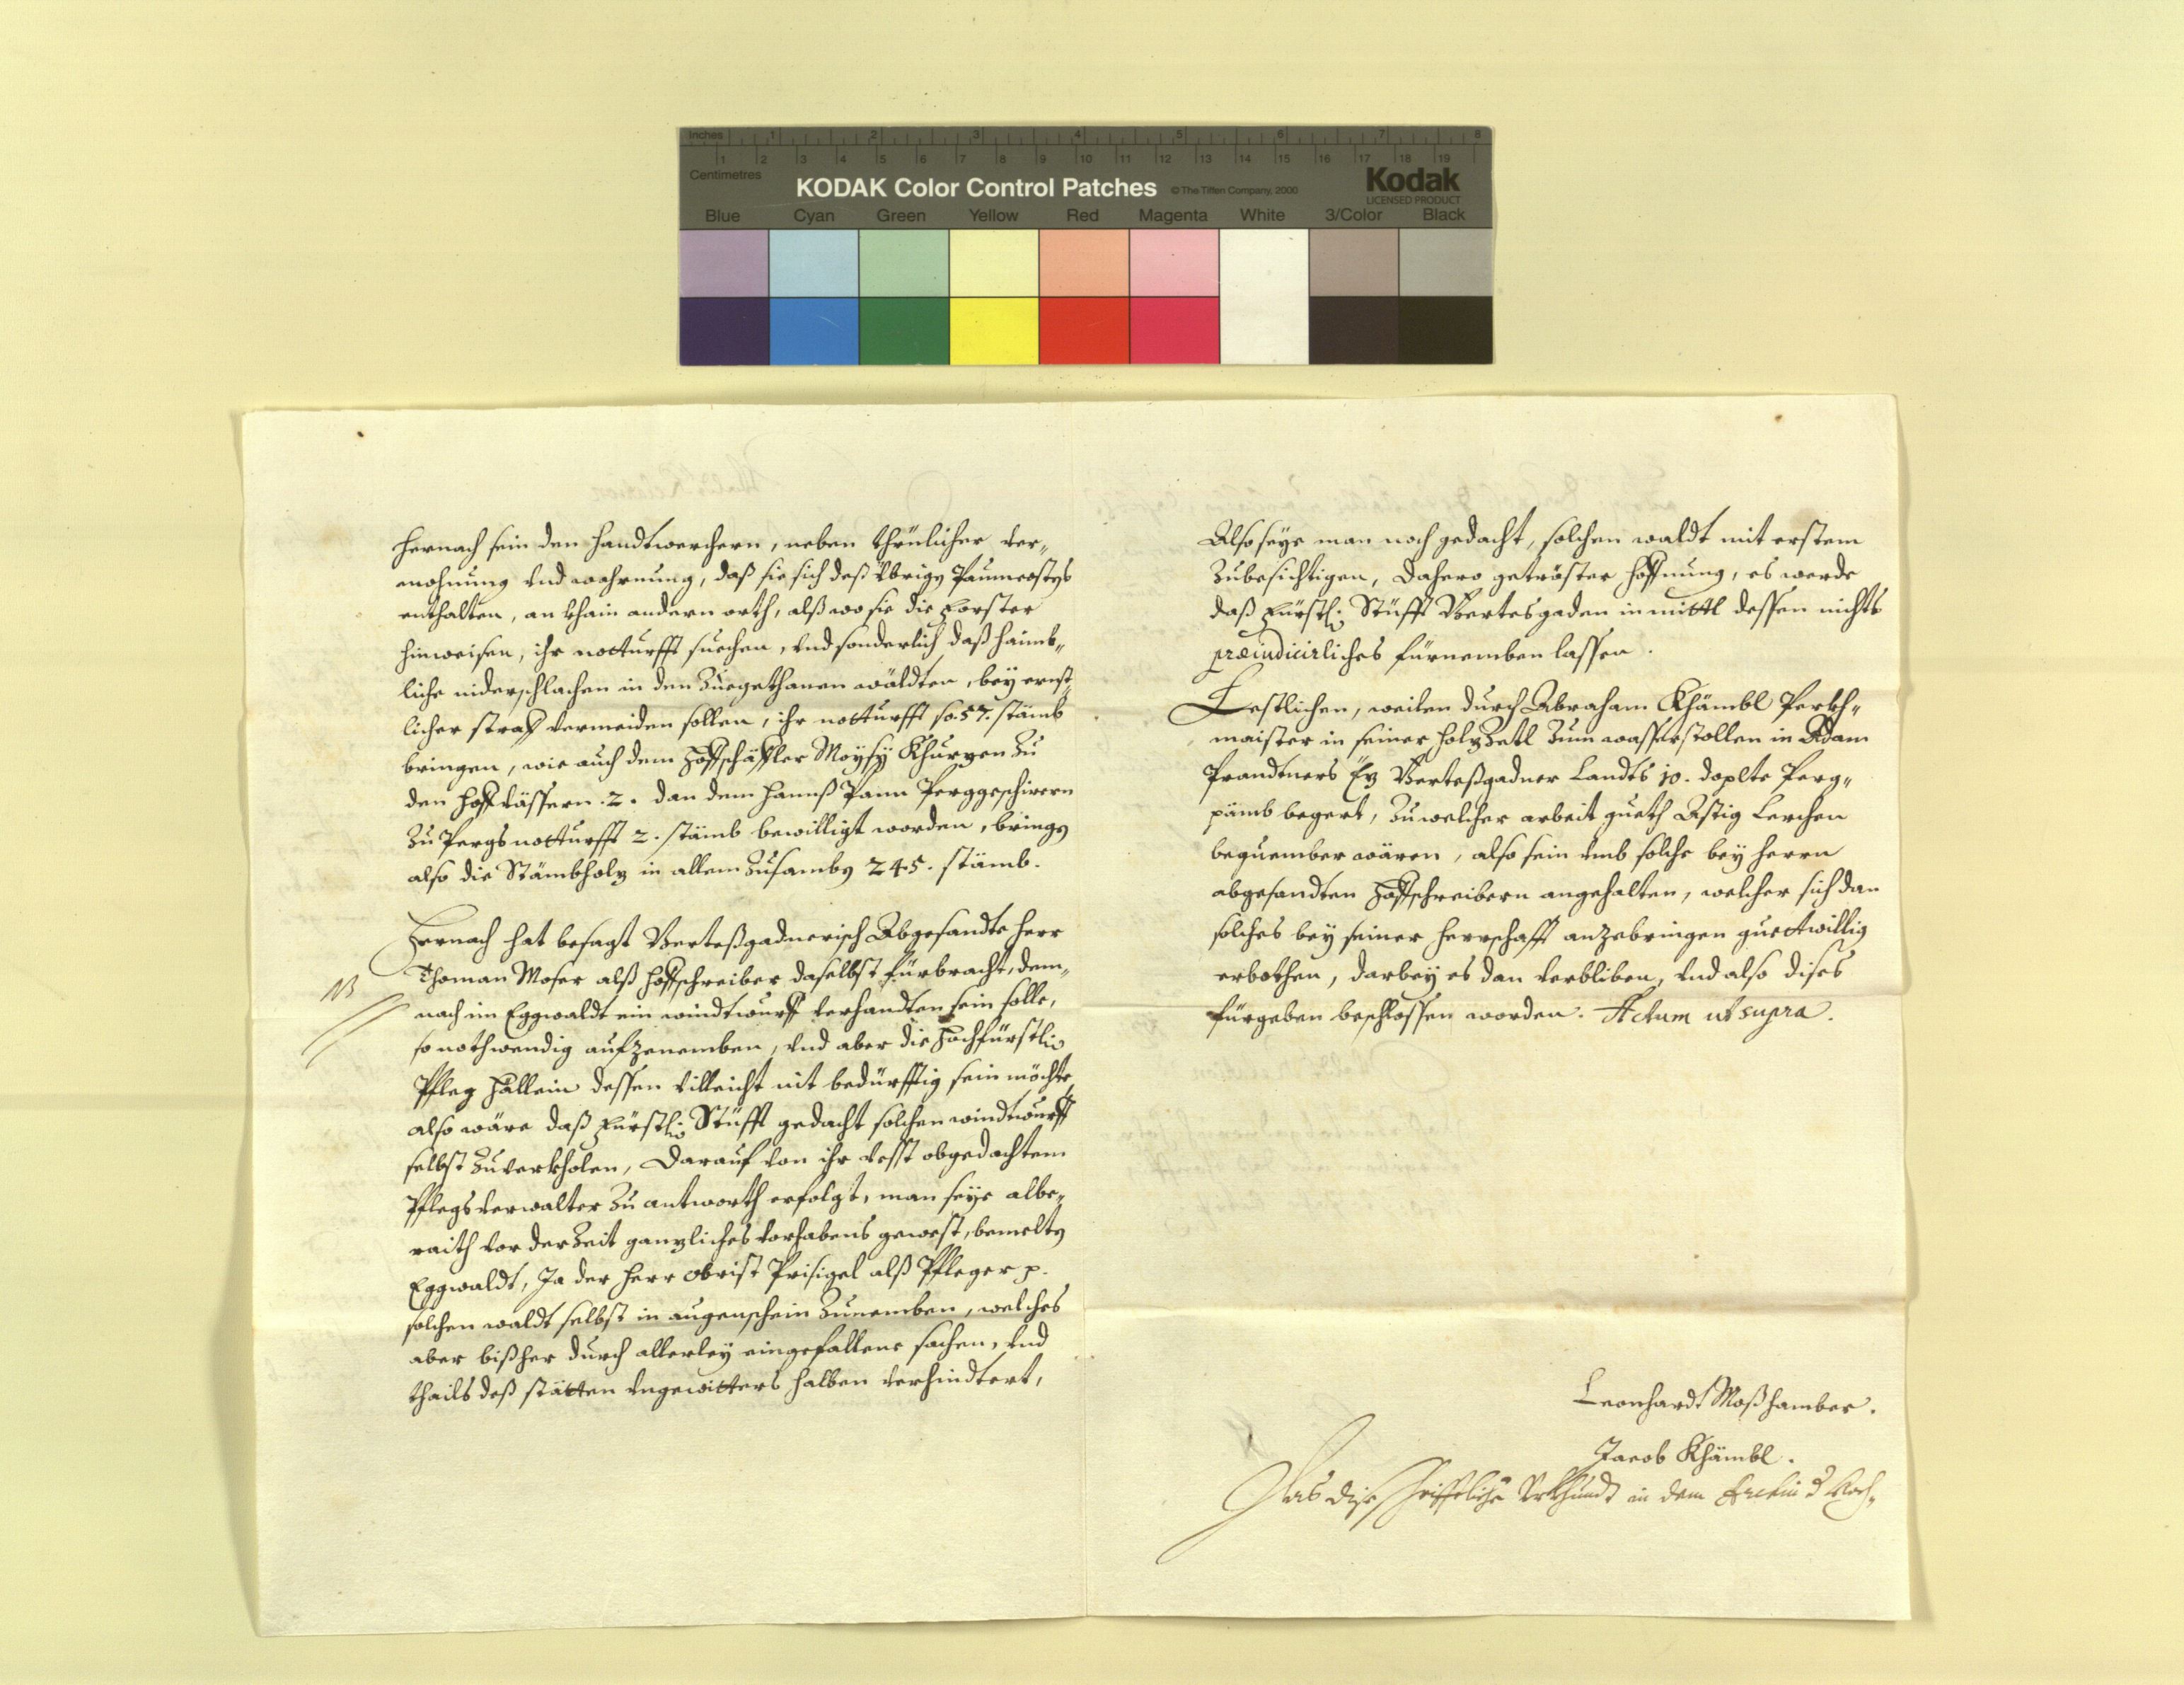 Inches 1 2 3 4 5 6 7 8
1 2 3 4 5 6 7 8 9 10 11 12 13 14 15 16 17 18 19
Centimetres
KODAK Color Control Patches © The Tiffen Company, 2000 Kodak
LICENSED PRODUCT
Blue Cyan Green Yellow Red Magenta White 3/Color Black
hernach sein den handtwerchern, neben threulicher ver„
mohnung vnd wahrnung, daß sie sich deß vbrigen
enthalten, an khain andern orth, alß wo sie die Forster
hinweisen, ihr notturfft suechen, vnd sonderlich daß haimb„
liche niderschlachen in den Zuegethanen wäldten, bey ernst„
licher straff vermeiden sollen, ihr notturfft so. 57. stämb
bringen, wie auch dem Hoffschäffler Moysy Khurzen Zu
den hoff vässern .2. dan dem Hannß Pann Perggeschirrern
Zu Pergs notturfft 2. stämb bewilligt worden, bringen
also die Stämbholz in allem Zusamben 245. stämb.
Hernach hat besagt Berteßgadnerisch Abgesandte herr
Thoman Moser alß hoffschreiber daselbst fürbracht, dem„
NB
nach im Eggwaldt ein windtwurff verhandten sein solle,
so nothwendig aufzenemben, vnd aber die Hochfürstlic
Pfleg Hällein dessen villeicht nit bedürfftig sein möchte,
also wäre daß Fürstlic Stüfft gedacht solchen windtwurff
selbst Zuverkholen, Darauf von ihr vesst obgedachtem
Pflegsverwalter Zu antworth erfolgt, man seye albe„
raith vor der Zeit ganzliches vorhabens gewest, bemelten
Eggwaldt, Ja der herr Obrist Prisigel alß Pfleger p.
solchen waldt selbst in augenschein Zunemben, welches
aber bißher durch allerley eingefallene sachen, vnd
thails deß stätten vngewitters halben verhindtert,
Also seye man noch gedacht, solchen waldt mit erstem
Zubesichtigen, Dahero getröster hoffnung, es werde
daß Fürstl: Stüfft Bertesgaden in mittl dessen nichts
præiudicirliches fürnemben lassen.
Lestlichen, weilen durch Abraham Khämbl Perkh„
maister in seiner holz Zetl Zum wasserstollen in Adam
Prandtners Ez Berteßgadner Landts 10. doplte Perg„
pämb begert, Zu welcher arbeit gueth Astig Lerchen
bequember wären, also sein vmb solche bey herrn
abgesandten Hoffschreibern angehalten, welcher sich dan
solches bey seiner herrschafft anzebringen guettwillig
erbothen, darbey es dan verbliben, vnd also dises
fürgeben beschlossen worden. Actum ut supra.
Leonhardt Moßhamber.
Jacob Khämbl.
Das dise schriftliche Vrkhundt in dem